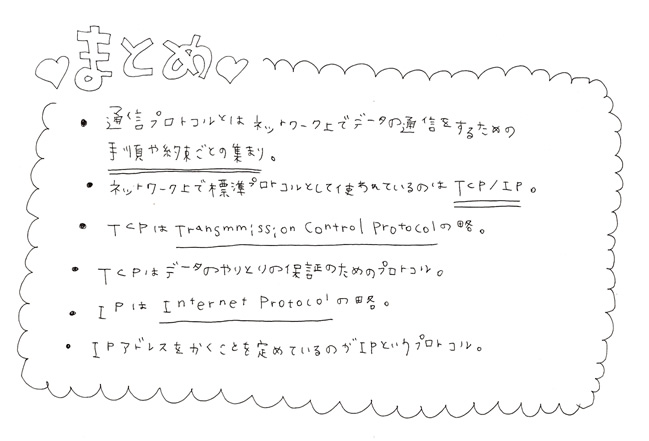 まとめ
• 通信プロトコルとはネットワーク上でデータの通信をするための
手順や約束ごとの集まり。
• ネットワーク上で標準プロトコルとして使われているのはTCP/IP。
• TCPはTransmmission Control Protocolの略。
• TCPはデータのやりとりの保証のためのプロトコル。
• IPは Internet Protocolの略。
• IPアドレスをかくことを定めているのがIPというプロトコル。